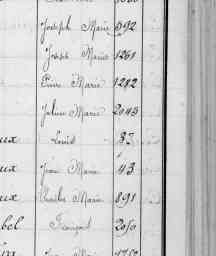 Joseph Marie 592
Joseph Marie 1261
Marie 1212
Julien Marie 2045
aux Louis 83
aux Jean Marie 43
aux Charles Marie 891
bel François 2050